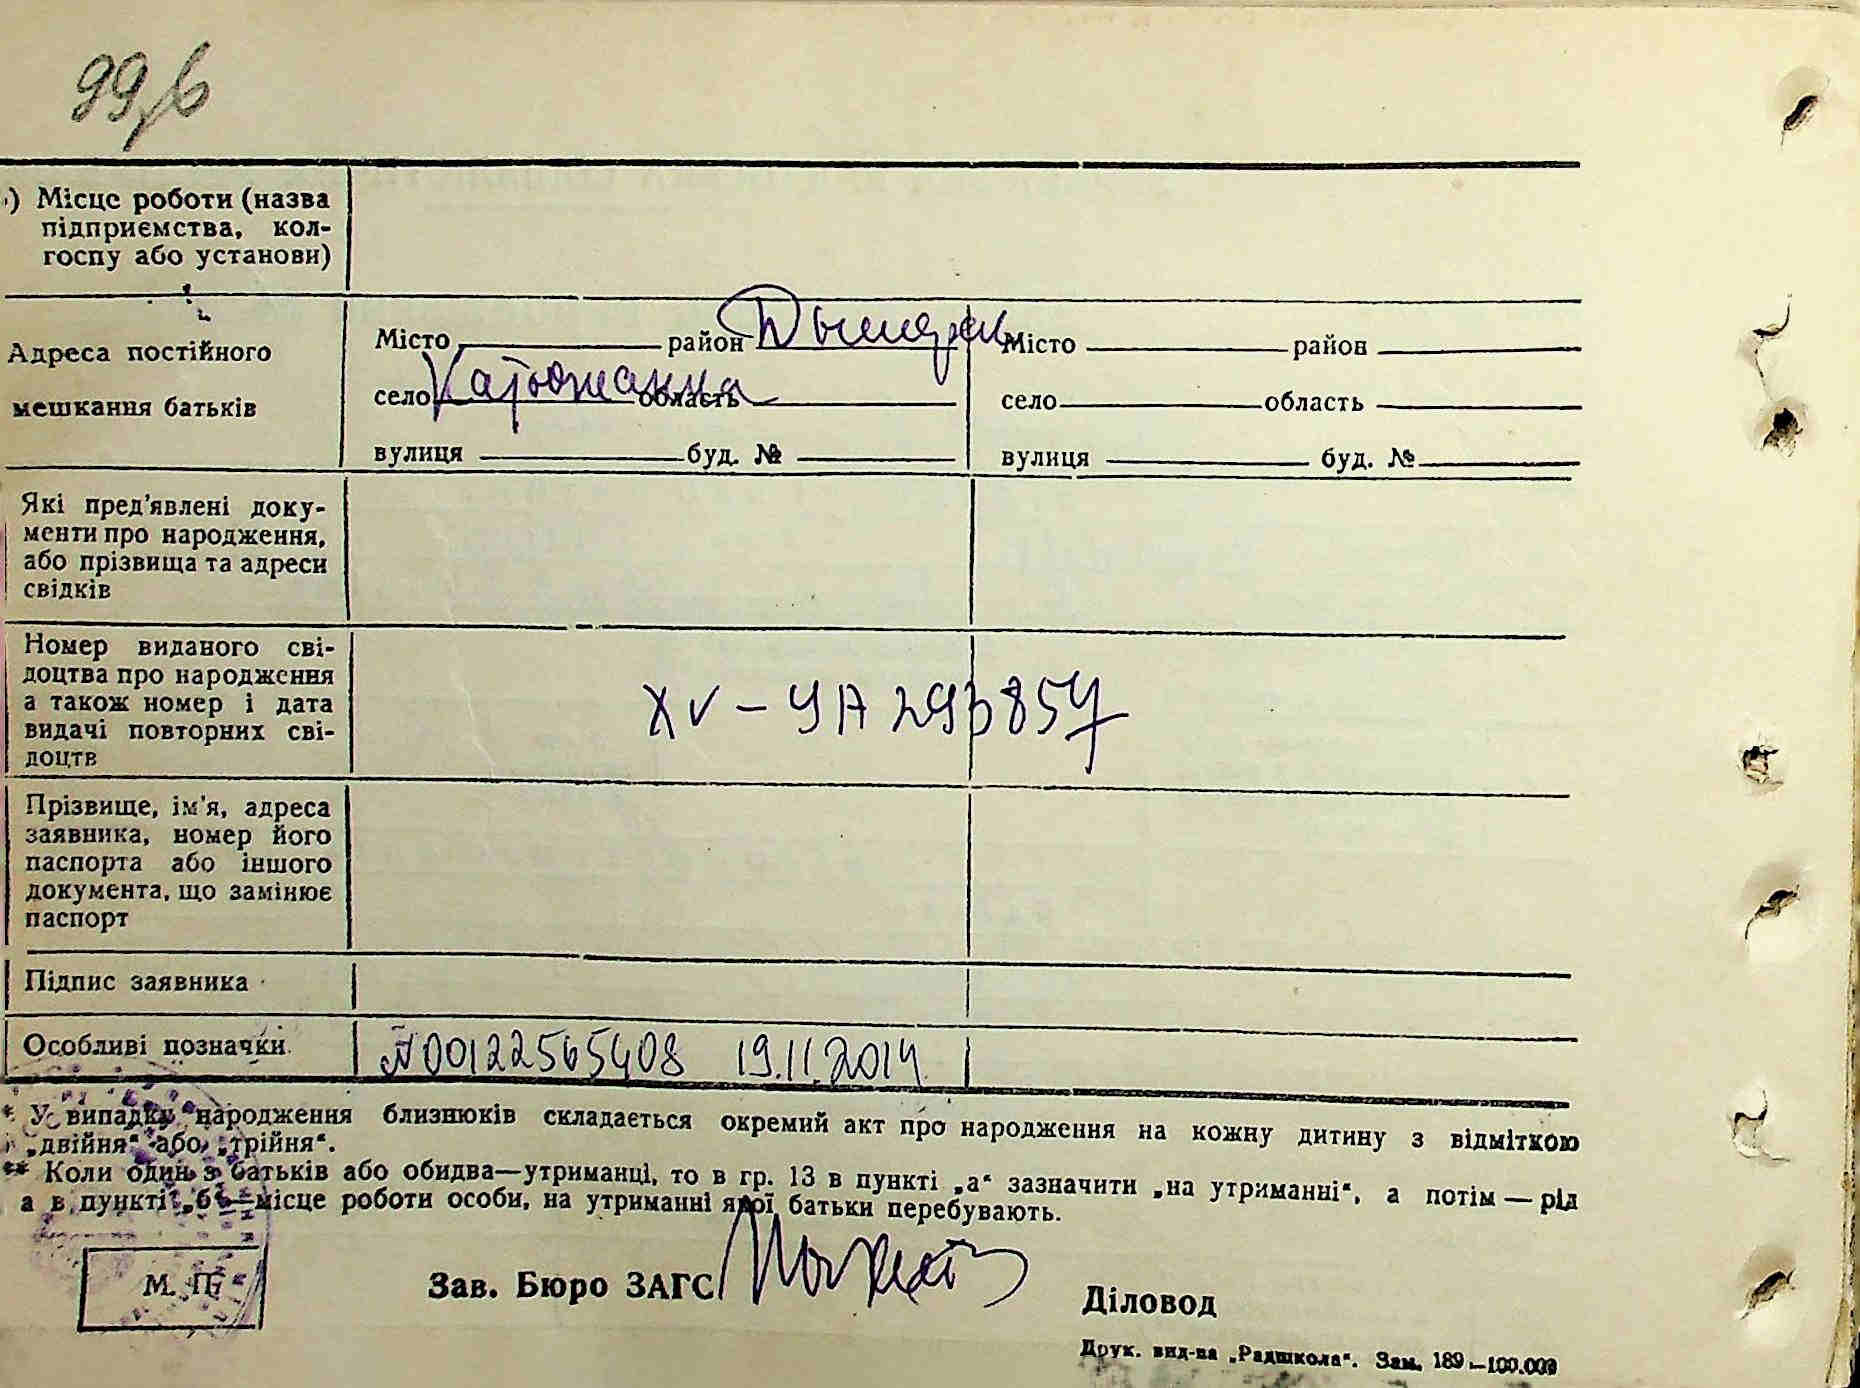 ) Місце роботи (назва
підприємства, кол-
госпу або установи)
Адреса постійного
мешкання батьків
Місто район Дымерск Місто район
село Катюжанка область село область
вулиця буд. № вулиця буд. №
Які пред'явлені доку-
менти про народження,
або прізвища та адреси
свідків
Номер виданого сві-
доцтва про народження
а також номер і дата
видачі повторних сві-
доцтв
XV - УА 293857
Прізвище, ім'я, адреса
заявника, номер його
паспорта або іншого
документа, що замінює
паспорт
Підпис заявника
Особливі позначки
N00122565408 19.11.2014
* У випадку народження близнюків складається окремий акт про народження на кожну дитину з відміткою
„двійня“ або „трійня“.
** Коли один з батьків або обидва—утриманці, то в гр. 13 в пункті „а“ зазначити „на утриманні“, а потім — рід
а в пункті „б“—місце роботи особи, на утриманні якої батьки перебувають.
М. П.
Зав. Бюро ЗАГС
Діловод
Друк. вид-ва „Радшкола“. Зам. 189—100.000